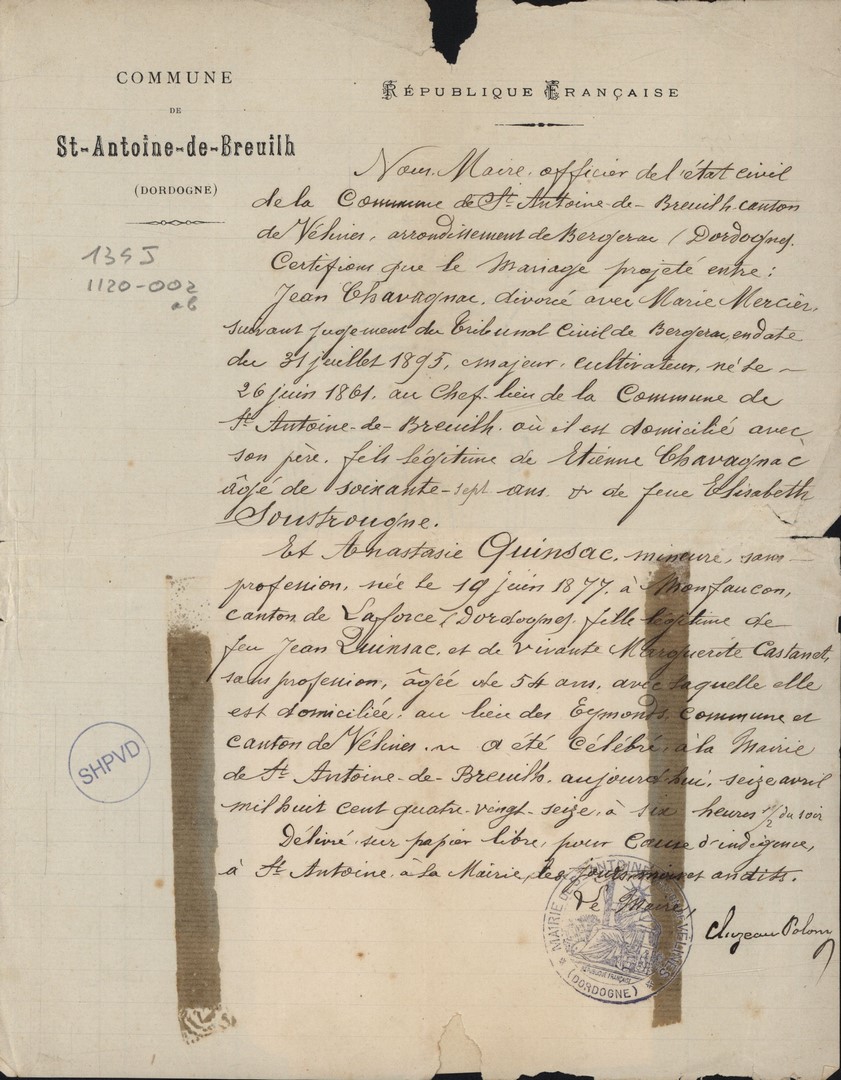 COMMUNE
DE
St-Antoine-de-Breuilh
(DORDOGNE)
RÉPUBLIQUE FRANÇAISE
1395
1120-002
Nous, Maire, officier de l'état civil
de la Commune de St Antoine-de-Breuilh canton
de Vélines, arrondissement de Bergerac (Dordogne).
Certifions que le Mariage projeté entre :
Jean Chavagnac, divorcé avec Marie Mercier,
suivant jugement du Tribunal Civil de Bergerac, en date
du 31 juillet 1895, majeur, cultivateur, né le —
26 juin 1861, au Chef-lieu de la Commune de
St Antoine-de-Breuilh, où il est domicilié avec
son père, fils légitime de Etienne Chavagnac
âgé de soixante-sept ans & de feue Elisabeth
Soustrougne.
Et Anastasie Quinsac, mineure, sans —
profession, née le 19 juin 1877, à Monfaucon,
canton de Laforce (Dordogne), fille légitime de
feu Jean Quinsac, et de vivante Marguerite Castanet,
sans profession, âgée de 54 ans, avec laquelle elle
est domiciliée, au lieu des Eymonds, Commune et
canton de Vélines. ~ a été célébré, à la Mairie
de St Antoine-de-Breuilh, aujourd'hui, seize avril
mil huit cent quatre-vingt-seize, à six heures 1/2 du soir
Délivré sur papier libre, pour cause d'indigence,
à St Antoine, à la Mairie, les jour, mois et an dits.
Le Maire,
Cluzeau
SHPVD
MAIRIE DE ST ANTOINE DE BREUILH VÉLINES
RÉPUBLIQUE FRANÇAISE
(DORDOGNE)